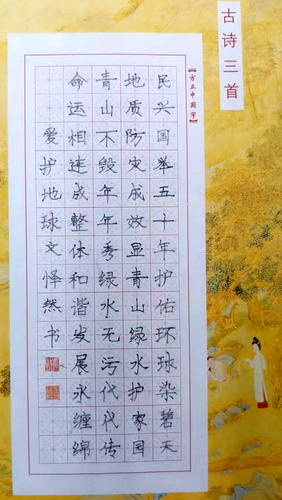 古诗三首
【方正中国字】
民兴国举五十年护佑环球染碧天
地质防灾成效显青山绿水护家国
青山不毁年年秀绿水无污代代传
命运相连成整体和谐发展永缠绵
爱护地球文怿然书